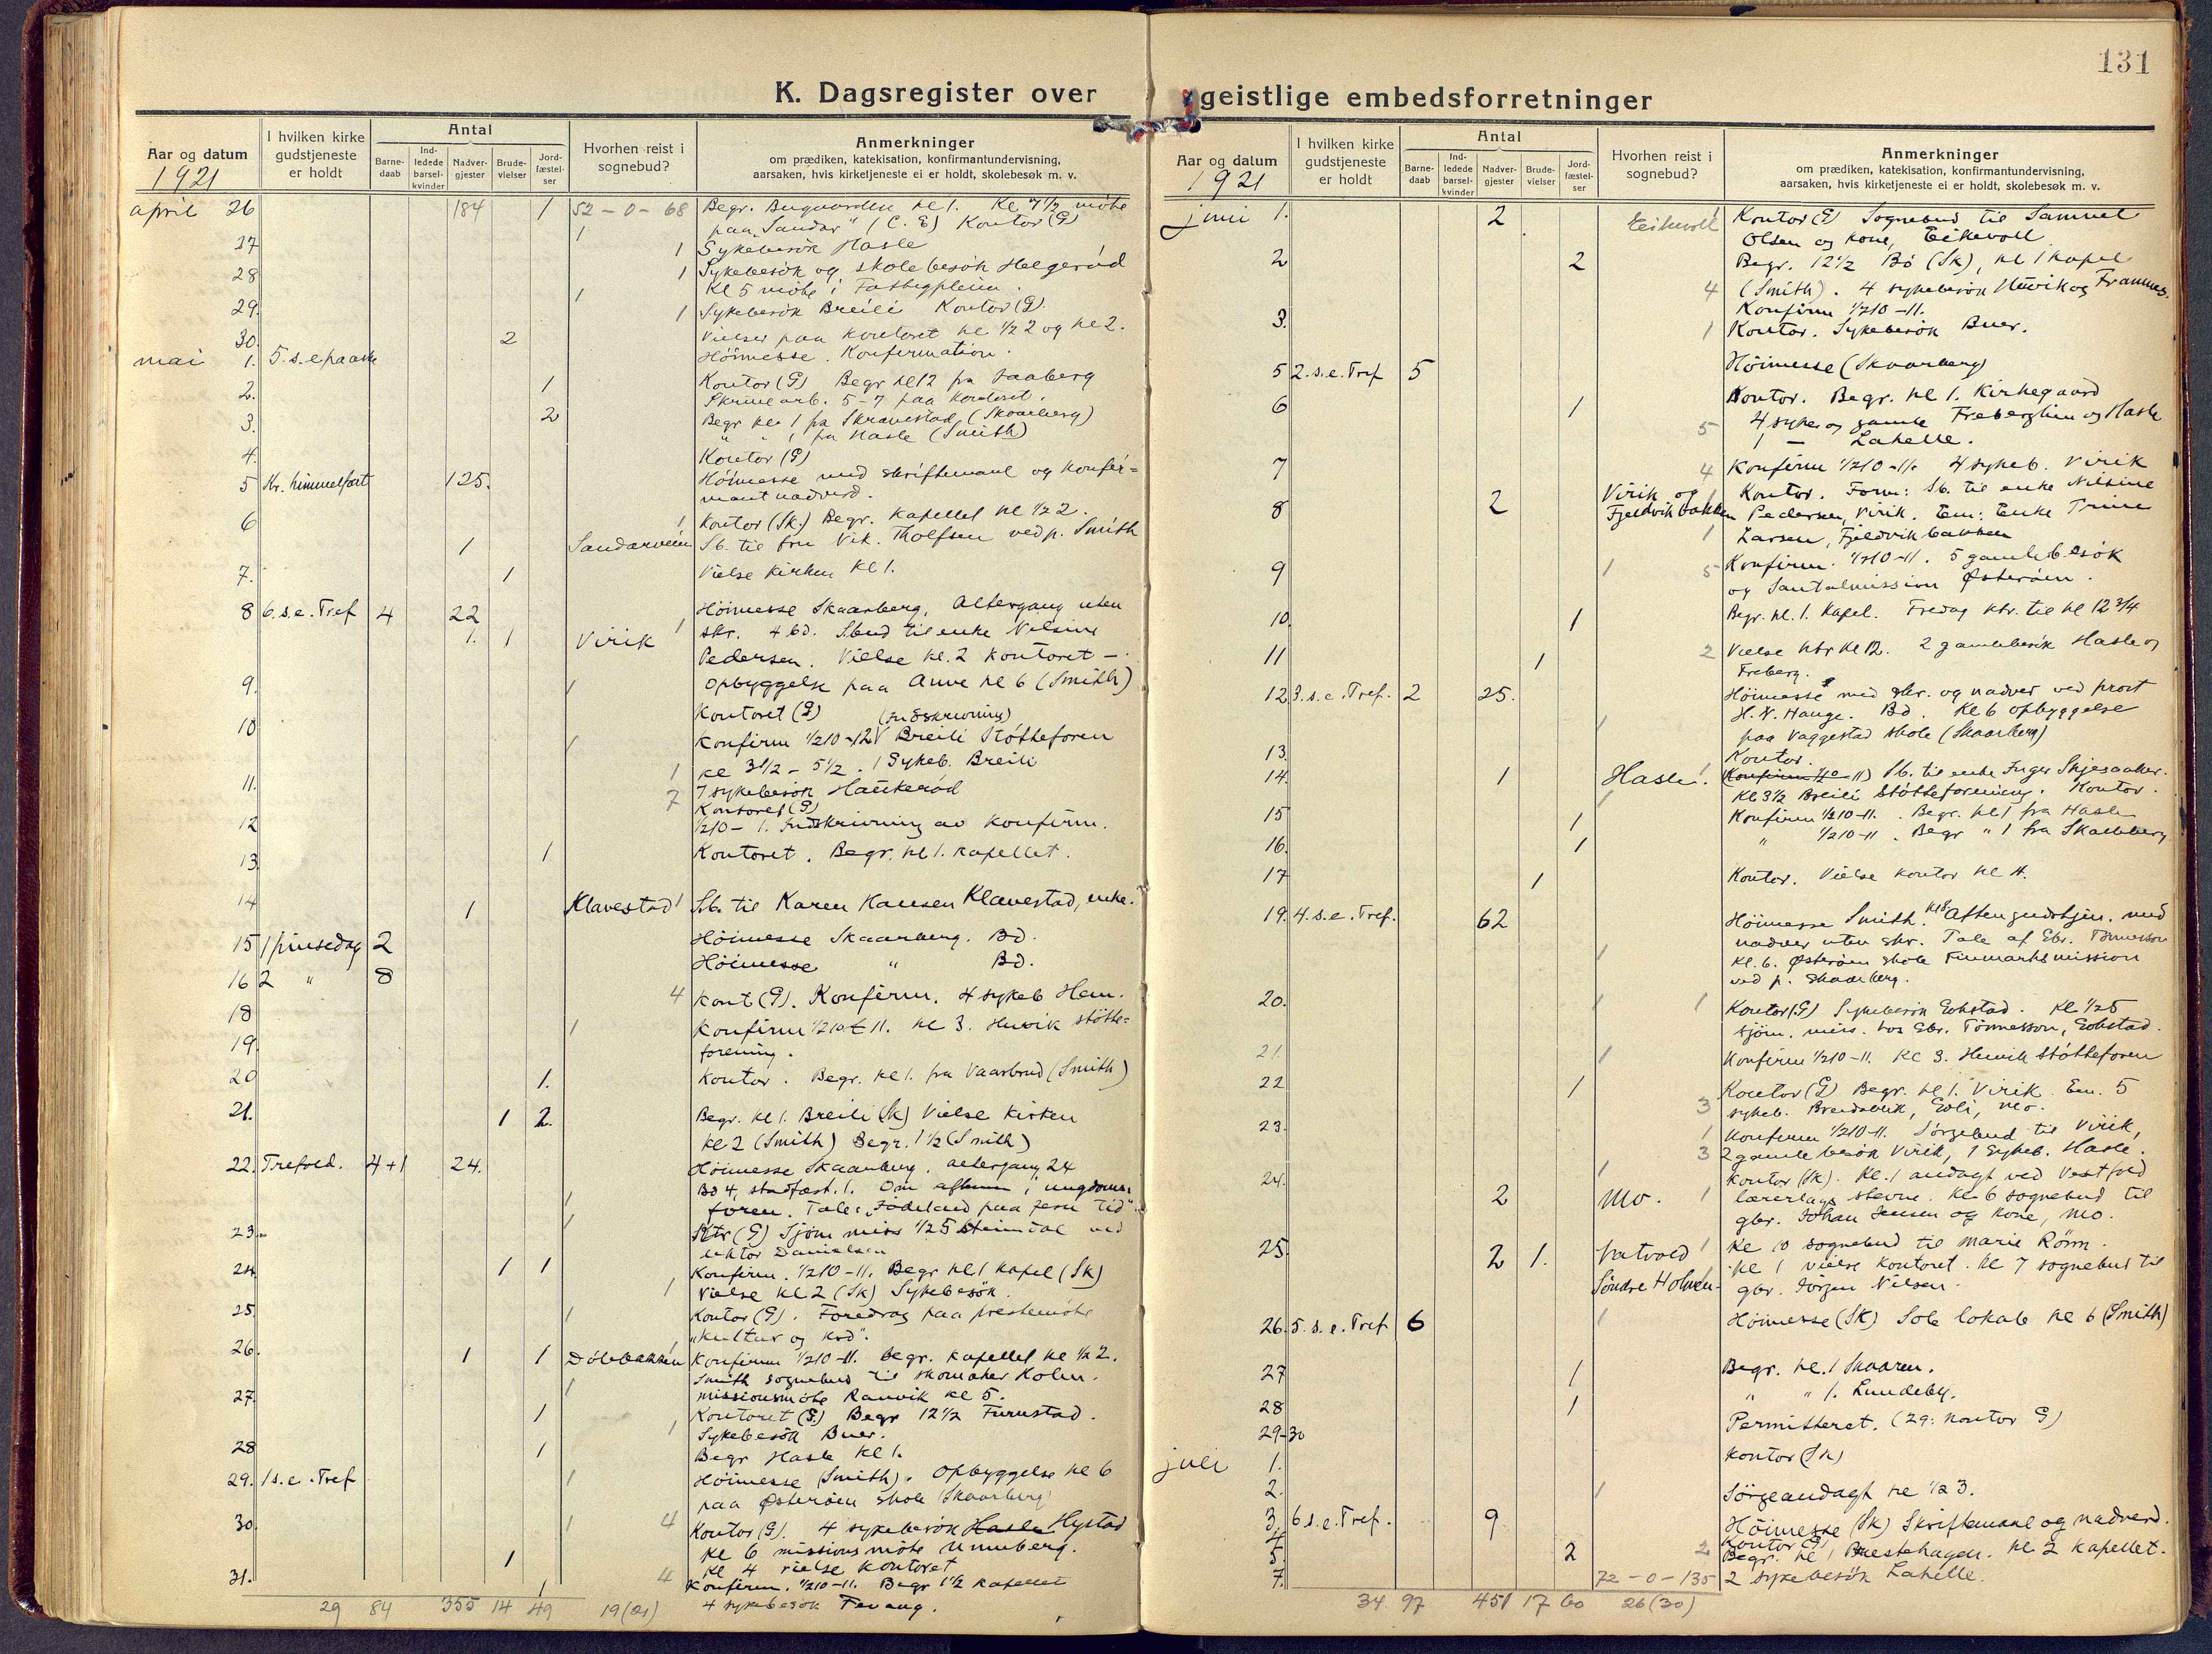 131
K. Dagsregister over
geistlige embedsforretninger
Aar og datum
1921
I hvilken kirke gudstjeneste er holdt
Antal
Barnedaab
Indledede barselkvinder
Nadvergjester
Brudevielser
Jordfæstelser
Hvorhen reist i sognebud?
Anmerkninger
om prædiken, katekisation, konfirmantundervisning,
aarsaken, hvis kirketjeneste ei er holdt, skolebesøk m. v.
april 26 184 1 52-0-68 Begr. Bugaarden kl 1. Kl 7 1/2 møte
1 paa "Sandar" (C. E) Kontor (G)
27 1 Sykebesök Hasle
28 1 Sykebesök og skolebesök Helgeröd
1 Kl 5 möte i
29. 1 Sykebesök Breili Kontor (G)
30. 2 Vielser paa kontoret kl 1/2 2 og kl 2.
mai 1. 5. s. e paaske Höimesse. Konfirmation.
2. 1 Kontor (G) Begr kl 12 fra Haaberg
5-7 paa kontoret.
3. 2 Begr kl 1 fra Skravestad (Skaarberg)
" " 1 fra Hasle (Smith)
4. Kontor (G)
5 Kr. himmelfart 125. Höimesse med skriftemaal og konfir=
mant nadverd.
6 1 Kontor (Sk.) Begr. kapellet kl 1/2 2.
1 Sandarveien Sb. til fru Vik. Tholfsen ved p. Smith
7. 1 Vielse kirken Kl 1.
8 6. s. e. Tref 4 22 Höimesse Skaarberg. Altergang uten
1. 1 Virik 1 skr. 4 bd. S.bud til enke Nilsine
Pedersen. Vielse kl. 2 kontoret -
9. 1 Opbyggelse paa Auve kl 6 (Smith)
Kontoret (G) (Indskrivning)
10 1 Konfirm 1/2 10-12 Breili Stötteforen
1 kl 3 1/2 - 5 1/2. 1 Sykeb. Breili
11. 7 7 sykebesök Haukeröd
Kontoret (G)
12 1/2 10 - 1. Indskrivning av konfirm.
13. 1 Kontoret. Begr. kl 1. kapellet.
14 1 Klavestad 1 S.b. til Karen Hansen Klavestad, enke.
15 1 pinsedag 2 Höimesse Skaarberg. Bd.
16 2 " 8 Höimesse " Bd.
18 4 Kont (G). Konfirm. 4 sykeb Hem.
19. 1 Konfirm 1/2 10-11. kl 3. Huvik stötte=
forening.
20 1. Kontor. Begr. kl 1. fra Vaarbrud (Smith)
21. 1 2. Begr. kl 1. Breili (Sk) Vielse kirken
kl 2 (Smith) Begr. 1 1/2 (Smith)
22. Trefold. 4+1 24. Höimesse Skaarberg. altergang 24
1 Bd 4, stadfæst. 1. Om aftenen i ungdoms
foren. Tale: "Fødeland paa Jesu tid".
23. 1 Ktr (G) Sjöm miss 1/2 5 Heimdal ved
lektor Danielsen
24 1 1 Konfirm. 1/2 10-11. Begr kl 1 kapel (Sk)
1 Vielse kl 2 (Sk) Sykebesök.
25. 1 Kontor (G). Foredrag paa prestemöte
"Kultur og ord".
26. 1 1 Dölebakken 1 Konfirm 1/2 10-11. Begr. kapellet kl 1/2 2.
Smith sognebud til skomaker Holm.
27. 1 missionsmöte Ranvik kl 5.
1 Kontoret (G.) Begr 12 1/2 Furustad.
1 Sykebesök Buer.
28 1 Begr Hasle kl 1.
29. 1 s. e. Tref 1 Höimesse (Smith). Opbyggelse kl 6
paa Østeröen skole Skaarberg
30. 1 4 Kontor (G). 4 sykebesök Hasle Hystad
kl 6 missionsmöte Unneberg.
1 kl 4 vielse kontoret
31. 1 4 Konfirm. 1/2 10-11. Begr 1 1/2 kapellet
4 sykebesök Fevang.
29 84 355 14 49 19 (21)
Aar og datum
1921
I hvilken kirke gudstjeneste er holdt
Antal
Barnedaab
Indledede barselkvinder
Nadvergjester
Brudevielser
Jordfæstelser
Hvorhen reist i sognebud?
Anmerkninger
om prædiken, katekisation, konfirmantundervisning,
aarsaken, hvis kirketjeneste ei er holdt, skolebesøk m. v.
juni 1. 2 Eikevoll 1 Kontor (G) Sognebud til Samuel
Olsen og kone, Eikevoll
2 2 Begr. 12 1/2 Bö (Sk), kl 1 kapel
4 (Smith). 4 sykebesök Huvik og Framnes.
Konfirm 1/2 10-11.
3. 1 Kontor. Sykebesök Buer.
5 2. s. e. Tref 5 Höimesse (Skaarberg)
6 1 Kontor. Begr. kl 1. Kirkegaard
5 4 syke og gamle Freberglien og Hasle
1 - Lahelle.
7 4 Konfirm 1/2 10-11. 4 sykeb. Virik
8 2 Virik og Fjeldvikbakken Kontor. Form: Sb. til enke Nilsine
Pedersen, Virik. Em: Enke Trine
1 Larsen, Fjeldvikbakken
9 1 5 Konfirm. 1/2 10-11. 5 gamlebesök
og Santalmission Østeröen.
10. 1 Begr. kl. 1. Kapel. Fredag ktr. til kl 12 3/4
11 1 2 Vielse ktr kl 12. 2 gamlebesök Hasle og
Freberg.
12 3. s. e. Tref. 2 25. Höimesse med skr. og nadver ved prost
H. N. Hauge. Bd. Kl 6 opbyggelse
1 paa Vaggestad skole (Skaarberg)
13. Kontor.
14. 1 Hasle. 1 (Konfirm 1/2 10-11) Sb. til enke Inger Skjesaaker.
1 Kl 3 1/2 Breili Stötteforening. Kontor.
15 1 Konfirm 1/2 10-11. Begr. kl 1 fra Hasle
16. 1 " 1/2 10-11. Begr " 1 fra Skaaberg
17 1 Kontor. Vielse kontor kl 11.
19. 4. s. e. Tref. 62 Höimesse Smith. kl 8 Aftengudstjen. med
nadver uten skr. Tale af Ebr. Tönnesson
1 Kl. 6. Østeröen skole Finmarksmission
ved p. Skaarberg.
20. 1 1 Kontor (G) Sykebesök Eobstad. Kl 1/2 5
sjöm. miss. hos Ebr. Tönnesson, Eobstad.
21. 1 Konfirm 1/2 10-11. Kl 3. Huvik Stötteforen
22 1 Kontor (G) Begr. kl 1. Virik. Em. 5
3 sykeb. Breidablik, Eoli, Mo.
23. 1 Konfirm 1/2 10-11. Sörgebud til Virik,
3 2 gamlebesök Virik, 1 Sykeb. Hasle.
24. 1 Kontor (Sk). Kl. 1 andagt ved Vestfold
2 Mo. 1 lærerlags stevne. kl 6 sognebud til
gbr. Johan Jensen og kone, Mo.
25 2 1. 1 Kl 10 sognebud til Marie Rönn.
Kl 1 vielse kontoret. kl 7 sognebud til
Söndre Holmen. gbr. Jörgen Nilsen.
26. 5. s. e. Tref 6 1 Höimesse (Sk) Sole lokale kl 6 (Smith)
27 1 Begr. kl. 1 Skaaren.
28 1 " " 1. Lundeby.
29-30 Permitteret. (29: kontor G)
juli 1. Kontor (Sk)
2. 1 Sörgeandagt kl 1/2 3.
3. 6 s. e. Tref. 9 Höimesse (Sk) Skriftemaal og nadverd.
4 Kontor (G)
5. 2 2 Begr. kl 1 Prestehagen. kl 2 kapellet.
7. 72-0-135 2 sykebesök Lahelle.
34 97 451 17 60 26 (30)